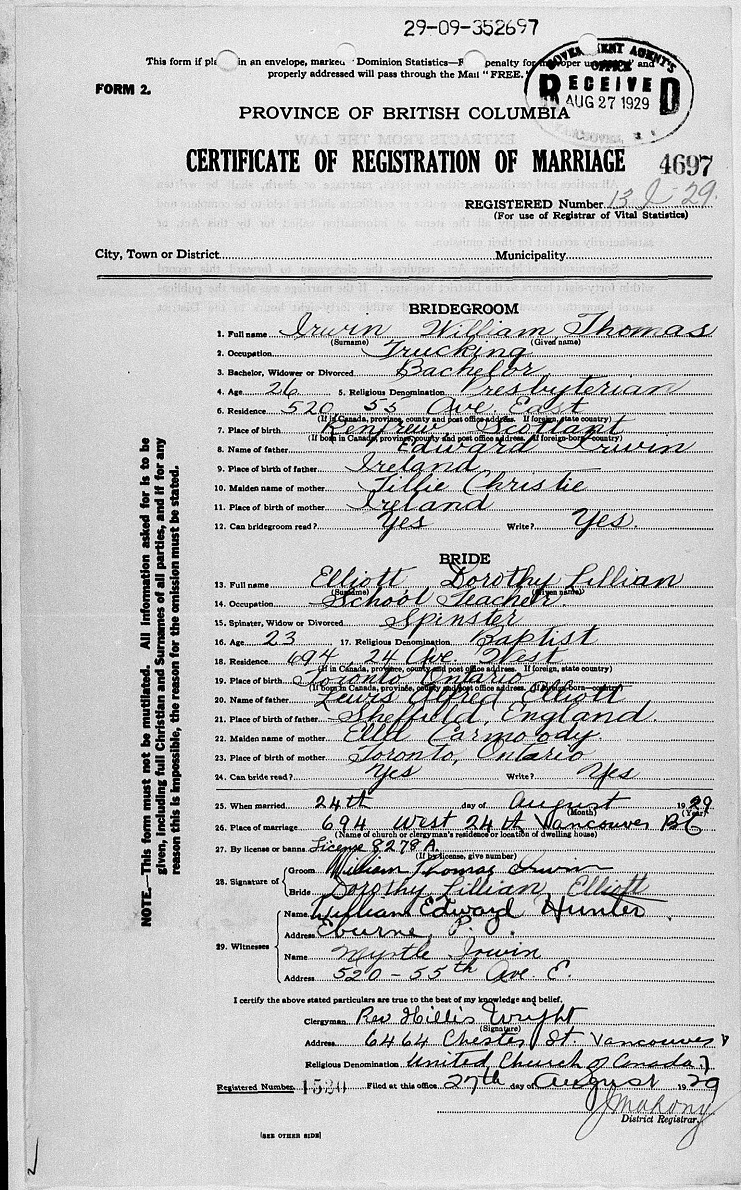 29-09-352697
This form if pla in an envelope, marked Dominion Statistics— penalty for improper and
properly addressed will pass through the Mail "FREE."
GOVERNMENT AGENT'S
OFFICE
RECEIVED
AUG 27 1929
FORM 2.
PROVINCE OF BRITISH COLUMBIA
CERTIFICATE OF REGISTRATION OF MARRIAGE
4697
REGISTERED Number 13 29
(For use of Registrar of Vital Statistics)
City, Town or District Municipality
BRIDEGROOM
1. Full name Irwin William Thomas
(Surname) (Given name)
2. Occupation Trucking
3. Bachelor, Widower or Divorced Bachelor
4. Age 26 5. Religious Denomination Presbyterian
6. Residence 520 55 Ave. East
(If in Canada, province, county and post office address. If foreign, state country)
7. Place of birth Renfrew Scotland
(If born in Canada, province, county and post office address. If foreign-born—country)
8. Name of father Edward Irwin
9. Place of birth of father Ireland
10. Maiden name of mother Tillie Christie
11. Place of birth of mother Ireland
12. Can bridegroom read? Yes Write? Yes.
BRIDE
13. Full name Elliott Dorothy Lillian
(Surname) (Given name)
14. Occupation School Teacher.
15. Spinster, Widow or Divorced Spinster
16. Age 23 17. Religious Denomination Baptist
18. Residence 694 24 Ave. West
(If in Canada, province, county and post office address. If foreign, state country)
19. Place of birth Toronto Ontario
(If born in Canada, province, county and post office address. If foreign-born—country)
20. Name of father Lewis Alfred Elliott
21. Place of birth of father Sheffield, England.
22. Maiden name of mother Ella Carmody
23. Place of birth of mother Toronto, Ontario
24. Can bride read? Yes Write? Yes
25. When married 24th day of August 1929
(Month) (Year)
26. Place of marriage 694 West 24th Vancouver BC
(Name of church or clergyman's residence or location of dwelling house)
27. By license or banns License 8278 A.
(If by license, give number)
28. Signature of Groom William Thomas Irwin
Bride Dorothy Lillian Elliott
29. Witnesses
Name William Edward Hunter.
Address Eburne, P. O.
Name Myrtle Irwin
Address 520-55th Ave. E.
I certify the above stated particulars are true to the best of my knowledge and belief.
Clergyman Rev Hillis Wright
(Signature)
Address 6464 Chester St. Vancouver
Religious Denomination United Church of Canada
Registered Number 1520 Filed at this office 27th day of August 1929
J Mahony
District Registrar.
[SEE OTHER SIDE]
NOTE.—This form must not be mutilated. All information asked for is to be
given, including full Christian and Surnames of all parties, and if for any
reason this is impossible, the reason for the omission must be stated.